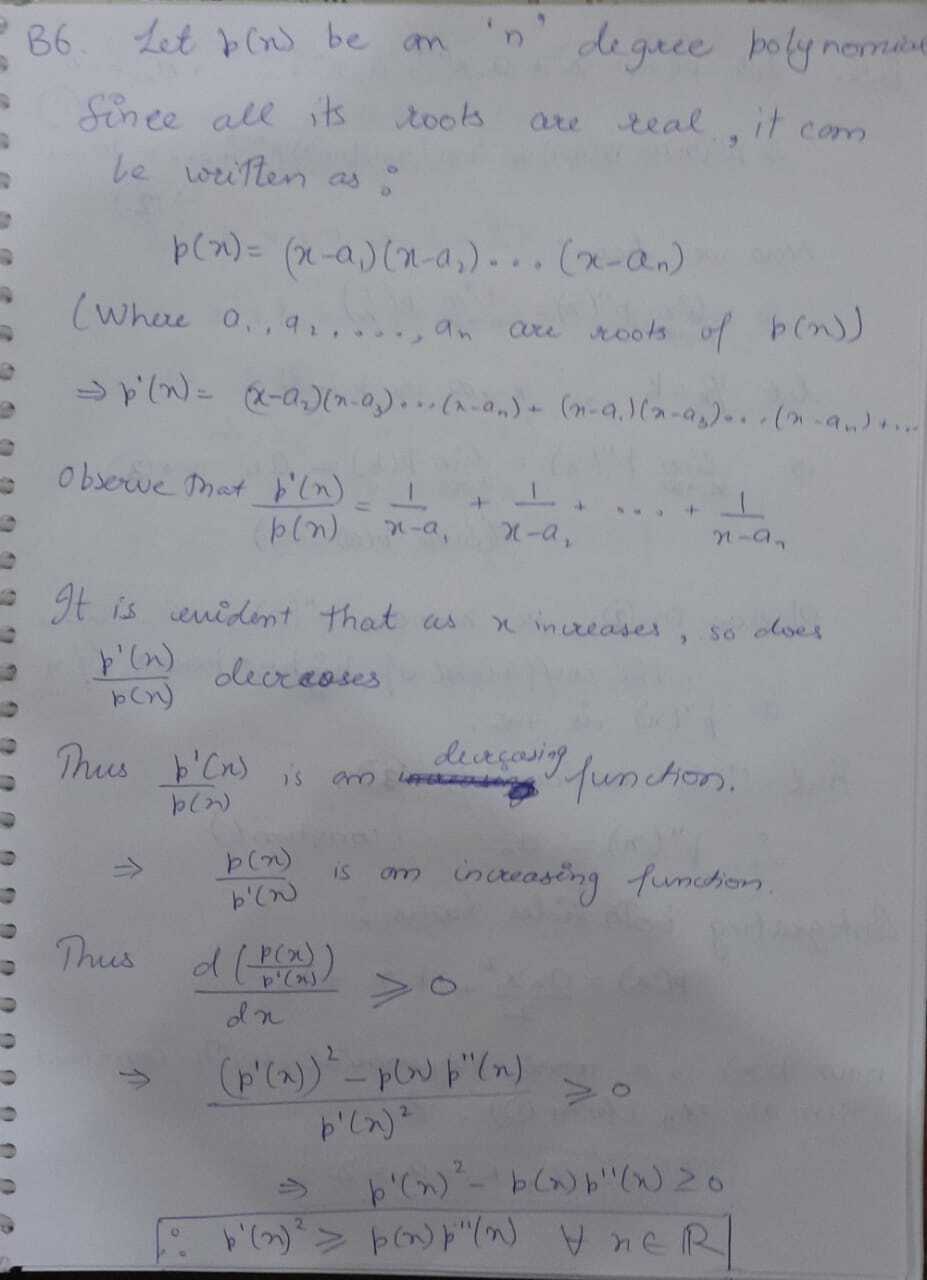 B6. Let p(x) be an 'n' degree polynomial
Since all its roots are real, it can
be written as :
p(x) = (x-a₁)(x-a₂)... (x-aₙ)
(Where a₁, a₂, ...., aₙ are roots of p(x))
⇒ p'(x) = (x-a₂)(x-a₃)...(x-aₙ) + (x-a₁)(x-a₃)...(x-aₙ)+...
Observe that p'(x)/p(x) = 1/(x-a₁) + 1/(x-a₂) + ... + 1/(x-aₙ)
It is evident that as x increases, so does
p'(x)/p(x) decreases
Thus p'(x)/p(x) is an decreasing function.
⇒ p(x)/p'(x) is an increasing function.
Thus d(p(x)/p'(x))/dx ≥ 0
⇒ ((p'(x))² - p(x) p''(x))/p'(x)² ≥ 0
⇒ p'(x)² - p(x) p''(x) ≥ 0
∴ p'(x)² ≥ p(x) p''(x) ∀ x ∈ ℝ